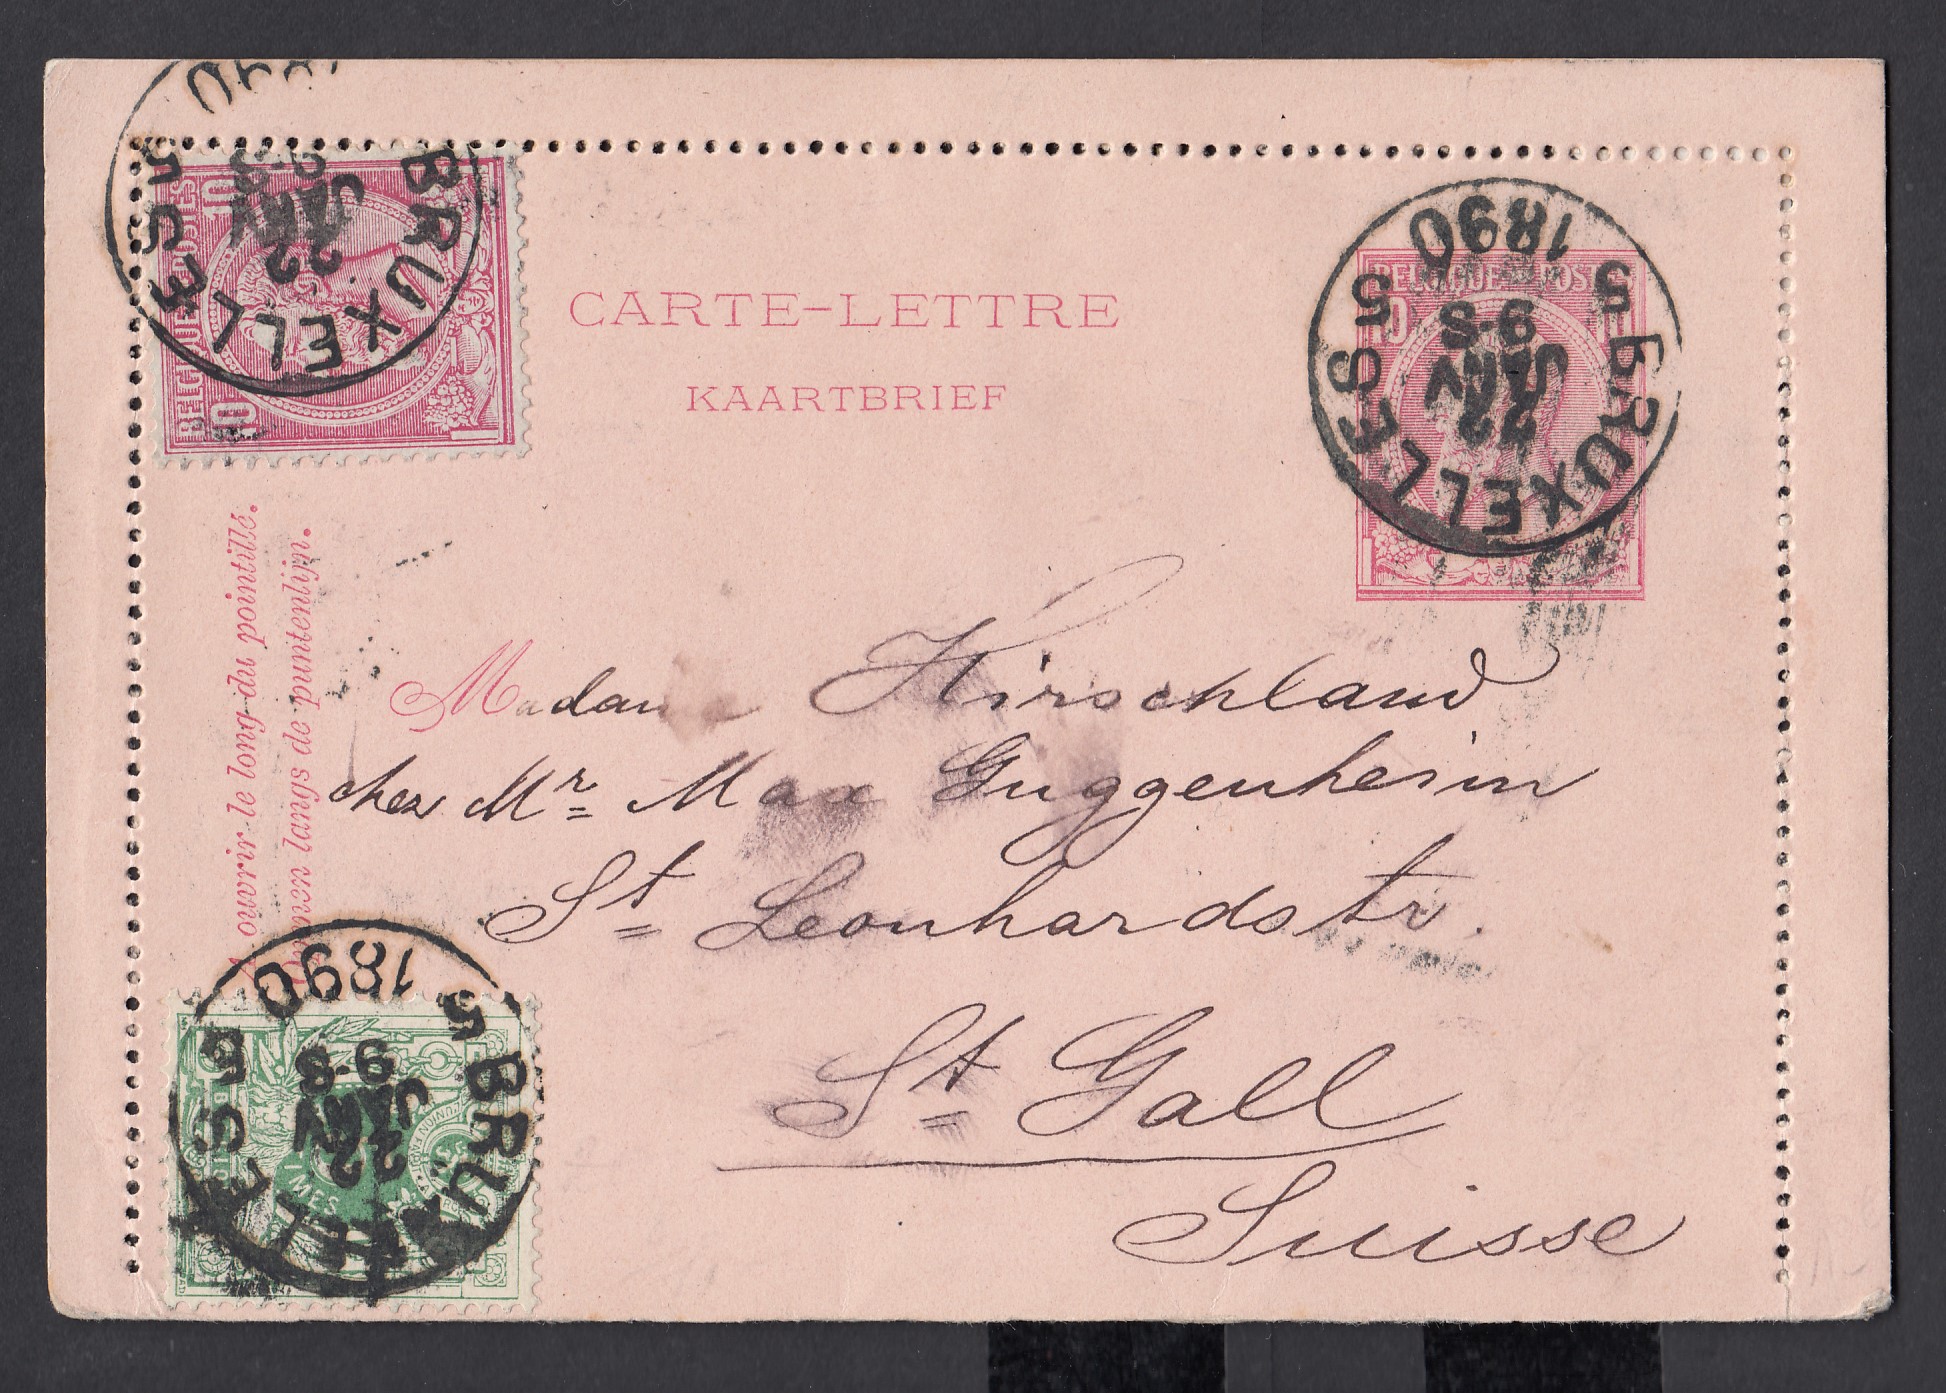 1890
BRUXELLES 5
9-S
JANV
22
BELGIQUE POSTES
10 10
CARTE-LETTRE
KAARTBRIEF
1890
5 BRUXELLES 5
9-S
JANV
22
BELGIQUE POSTES
10
A ouvrir le long du pointillé.
langs de puntenlijn.
Madame Hirschland
chez Mr Max Guggenheim
St Leonhardstr.
St Gall
Suisse
1890
5 BRUXELLES 5
9-S
JANV
22